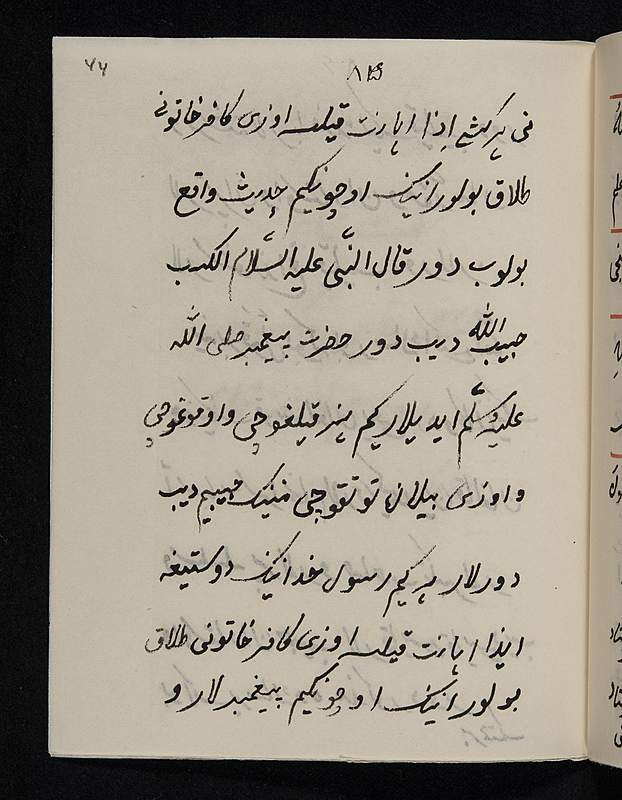 ۴۴
۸۴
نی هر کشی اِذا اهانت قیلسه اوزی کافر خاتونی
طلاق بولور انینک اوچونکیم حدیث واقع
بولوب دور قال النّبی علیه السّلام الکسب
حبیب الله دیب دور حضرت پیغمبر صلی الله
علیه وسلّم ایدیلار کیم هنر قیلغوچی و اوقوغوچی
و اوزی بیلان توتقوچی مننک حبیبیم دیب
دورلار هر کیم رسول خدانینک دوستیغه
ایذا اهانت قیلسه اوزی کافر خاتونی طلاق
بولور انینک اوچونکیم پیغمبرلار و